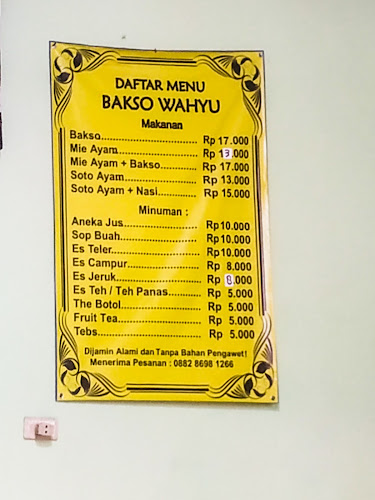 DAFTAR MENU
BAKSO WAHYU
Makanan
Bakso.............................. Rp 17.000
Mie Ayam......................... Rp 13.000
Mie Ayam + Bakso........... Rp 17.000
Soto Ayam...................... Rp 13.000
Soto Ayam + Nasi............ Rp 15.000
Minuman :
Aneka Jus....................... Rp10.000
Sop Buah........................ Rp10.000
Es Teler........................... Rp10.000
Es Campur...................... Rp 8.000
Es Jeruk.......................... Rp 8.000
Es Teh / Teh Panas.......... Rp 5.000
The Botol........................ Rp 5.000
Fruit Tea......................... Rp 5.000
Tebs................................ Rp 5.000
Dijamin Alami dan Tanpa Bahan Pengawet!
Menerima Pesanan : 0882 8698 1266